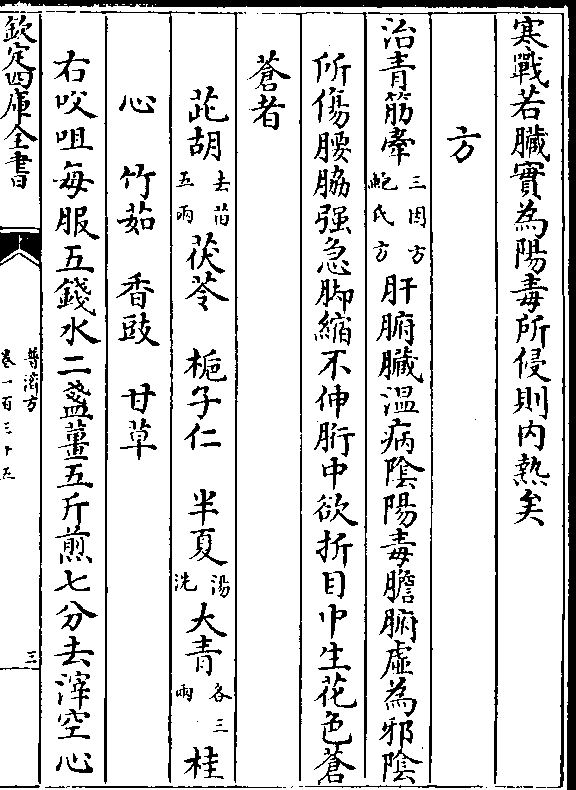 寒戰若臟實為陽毒所侵則内熱矣
方
治青筋牽三因方鮑氏方肝腑臓温病陰陽毒膽腑虛為邪陰
所傷腰脇强急脚縮不伸䯒中欲折目中生花色蒼
蒼者
茈胡去苗五兩茯苓 梔子仁 半夏湯洗大青各三兩桂
心 竹茹 香豉 甘草
右㕮咀每服五錢水二盞薑五斤煎七分去滓空心
欽定四庫全書
普濟方
卷一百三十五
三